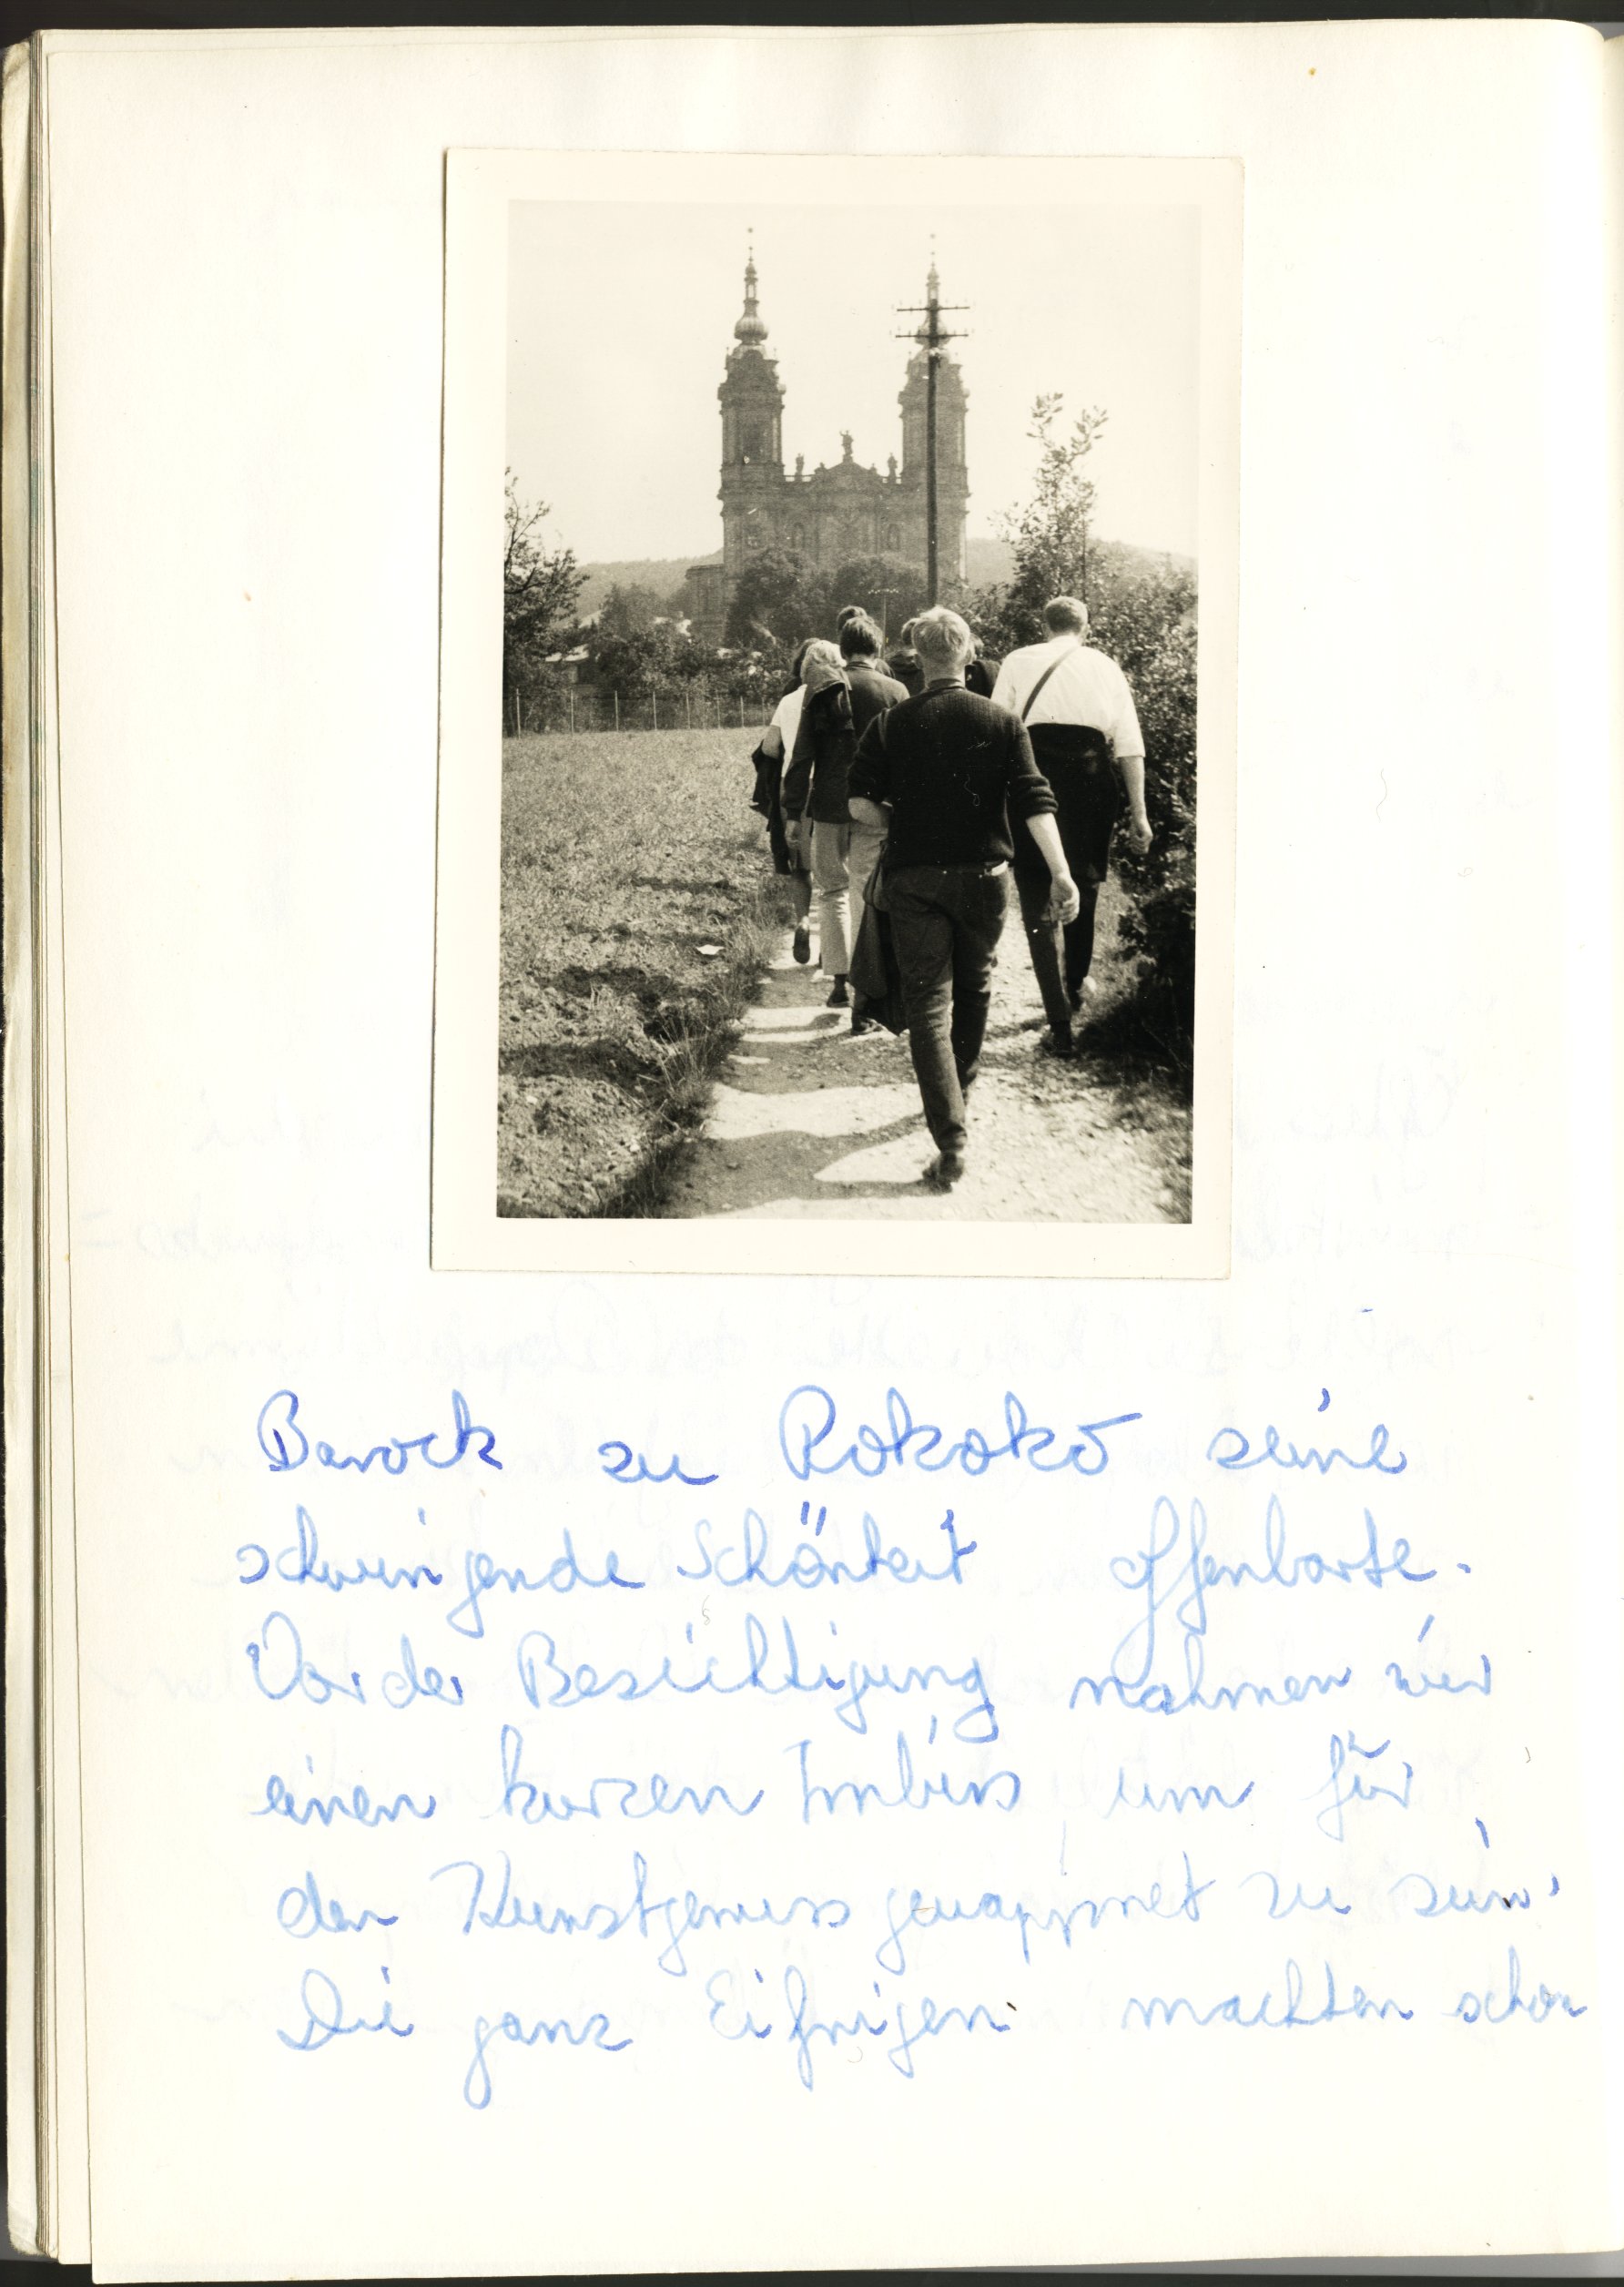 Barock zu Rokoko seine
schwingende Schönheit offenbarte.
Vor der Besichtigung nahmen wir
einen kurzen Imbiss um für
den Kunstgenuss gewappnet zu sein.
Die ganz Eifrigen machten schon